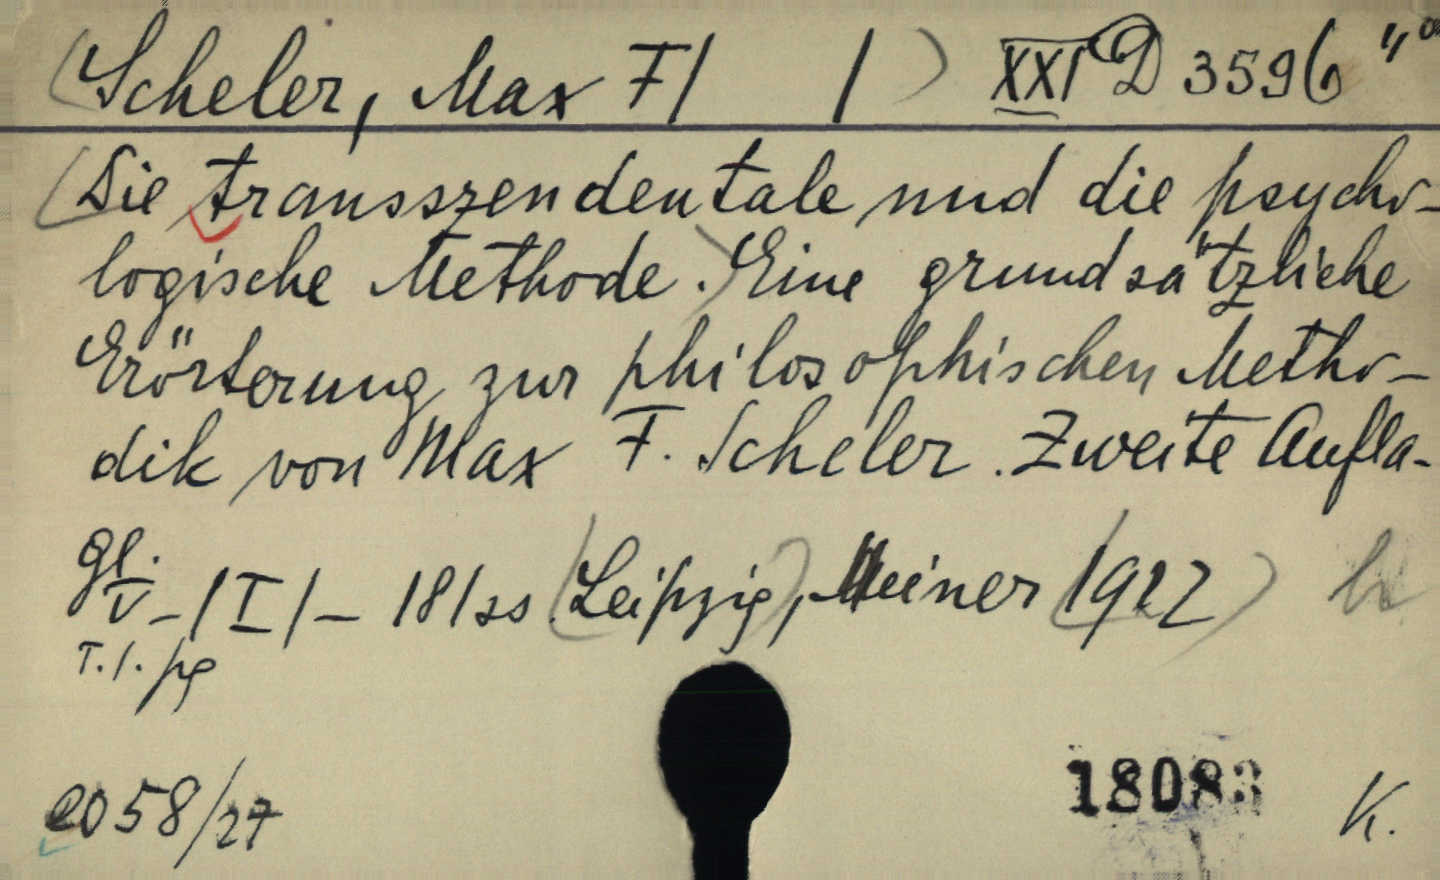 (Scheler, Max F/ /) XXI D 3596
(Die transszendentale und die psycho-
logische Methode.) Eine grundsätzliche
Erörterung zur philosophischen Metho-
dik von Max F. Scheler. Zweite Aufla-
gl.
V-/I/- 181 ss (Leipzig), Meiner (1922)
T.1. pg
2058/27
18083
K.